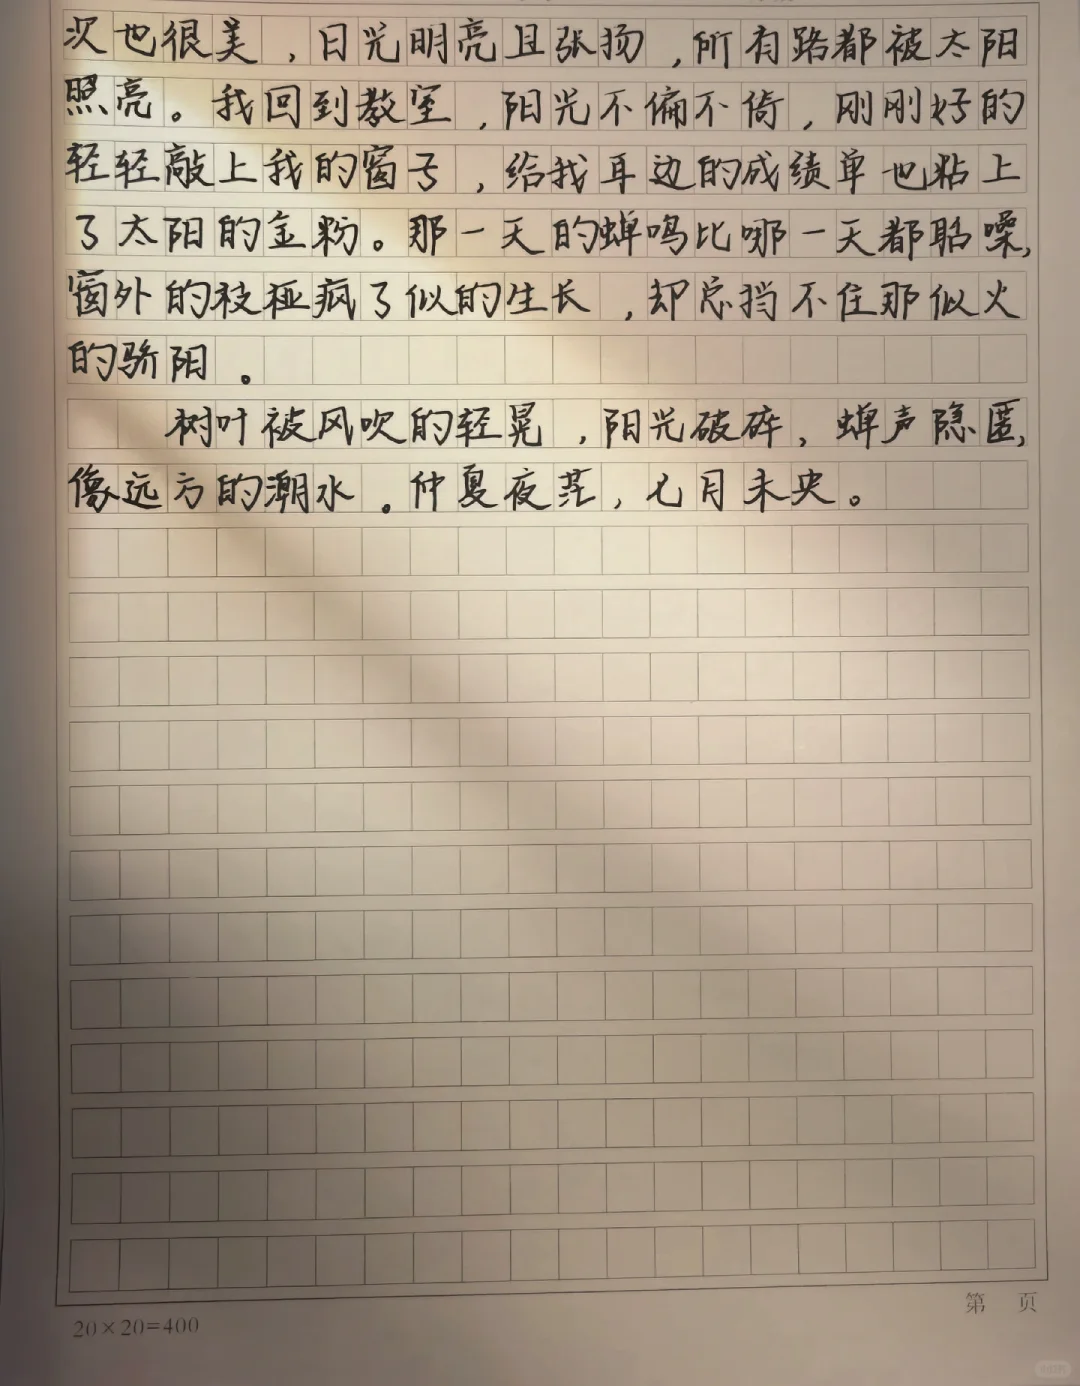 次也很美，日光明亮且张扬，所有路都被太阳
照亮。我回到教室，阳光不偏不倚，刚刚好的
轻轻敲上我的窗子，给我耳边的成绩单也粘上
了太阳的金粉。那一天的蝉鸣比哪一天都聒噪，
窗外的枝桠疯了似的生长，却总挡不住那似火
的骄阳。
树叶被风吹的轻晃，阳光破碎，蝉声隐匿，
像远方的潮水。仲夏夜茫，七月未央。
第 页
20×20=400